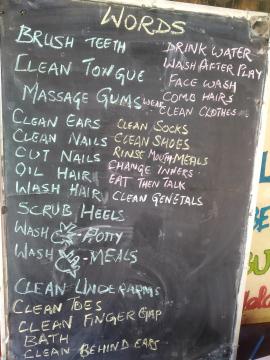 WORDS
BRUSH TEETH
CLEAN TONGUE
MASSAGE GUMS
CLEAN EARS
CLEAN NAILS
CUT NAILS
OIL HAIR
WASH HAIR
SCRUB HEELS
WASH - POTTY
WASH - MEALS
CLEAN UNDERARMS
CLEAN TOES
CLEAN FINGER GAP
BATH
CLEAN BEHIND EARS
DRINK WATER
WASH AFTER PLAY
FACE WASH
COMB HAIRS
WEAR CLEAN CLOTHES
CLEAN SOCKS
CLEAN SHOES
RINSE MOUTH MEALS
CHANGE INNERS
EAT THEN TALK
CLEAN GENETALS